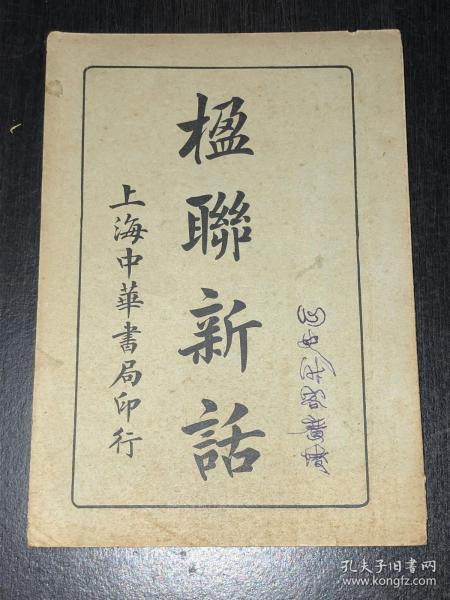 楹聯新話
上海中華書局印行
孔夫子旧书网
www.kongfz.com